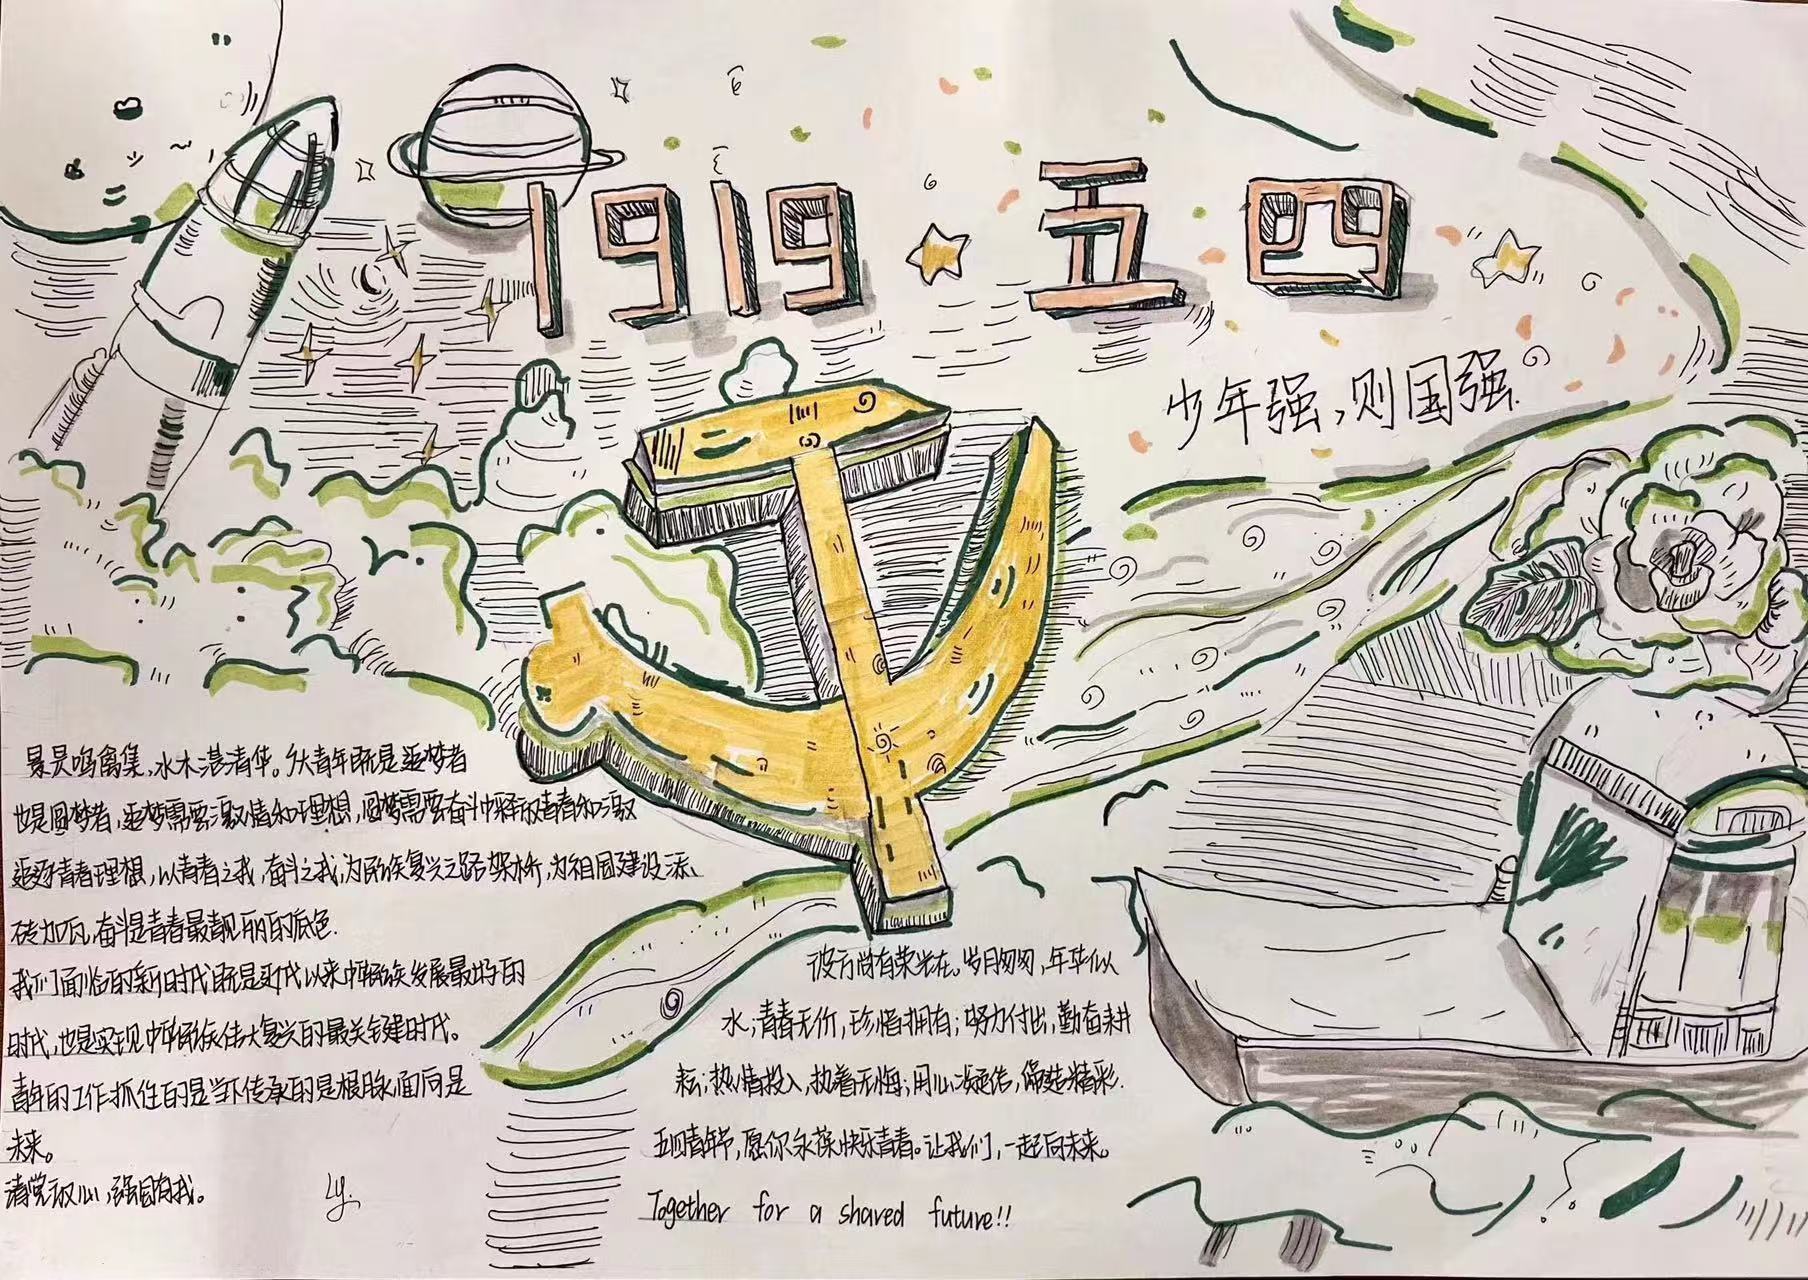 1919 五四
少年强,则国强.
景昃鸣禽集,水木湛清华。广大青年既是追梦者
也是圆梦者,追梦需要激情和理想,圆梦需要奋斗中释放青春和激
追逐青春理想,以青春之我,奋斗之我,为民族复兴之路架桥,为祖国建设添、
砖加瓦,奋斗是青春最靓丽的底色.
我们面临的新时代既是近代以来中华民族发展最好的
时代,也是实现中华民族伟大复兴的最关键时代。
青年的工作抓住的是当下传承的是根脉面向是
未来。
请党放心,强国有我。
Ly.
彼方尚有荣光在。岁月匆匆,年华似
水;青春无价,珍惜拥有;努力付出,勤奋耕
耘;热情投入,执着无悔;用心凝结,缔造精彩.
五四青年节,愿你永葆快乐青春。让我们,一起向未来。
Together for a shared future!!